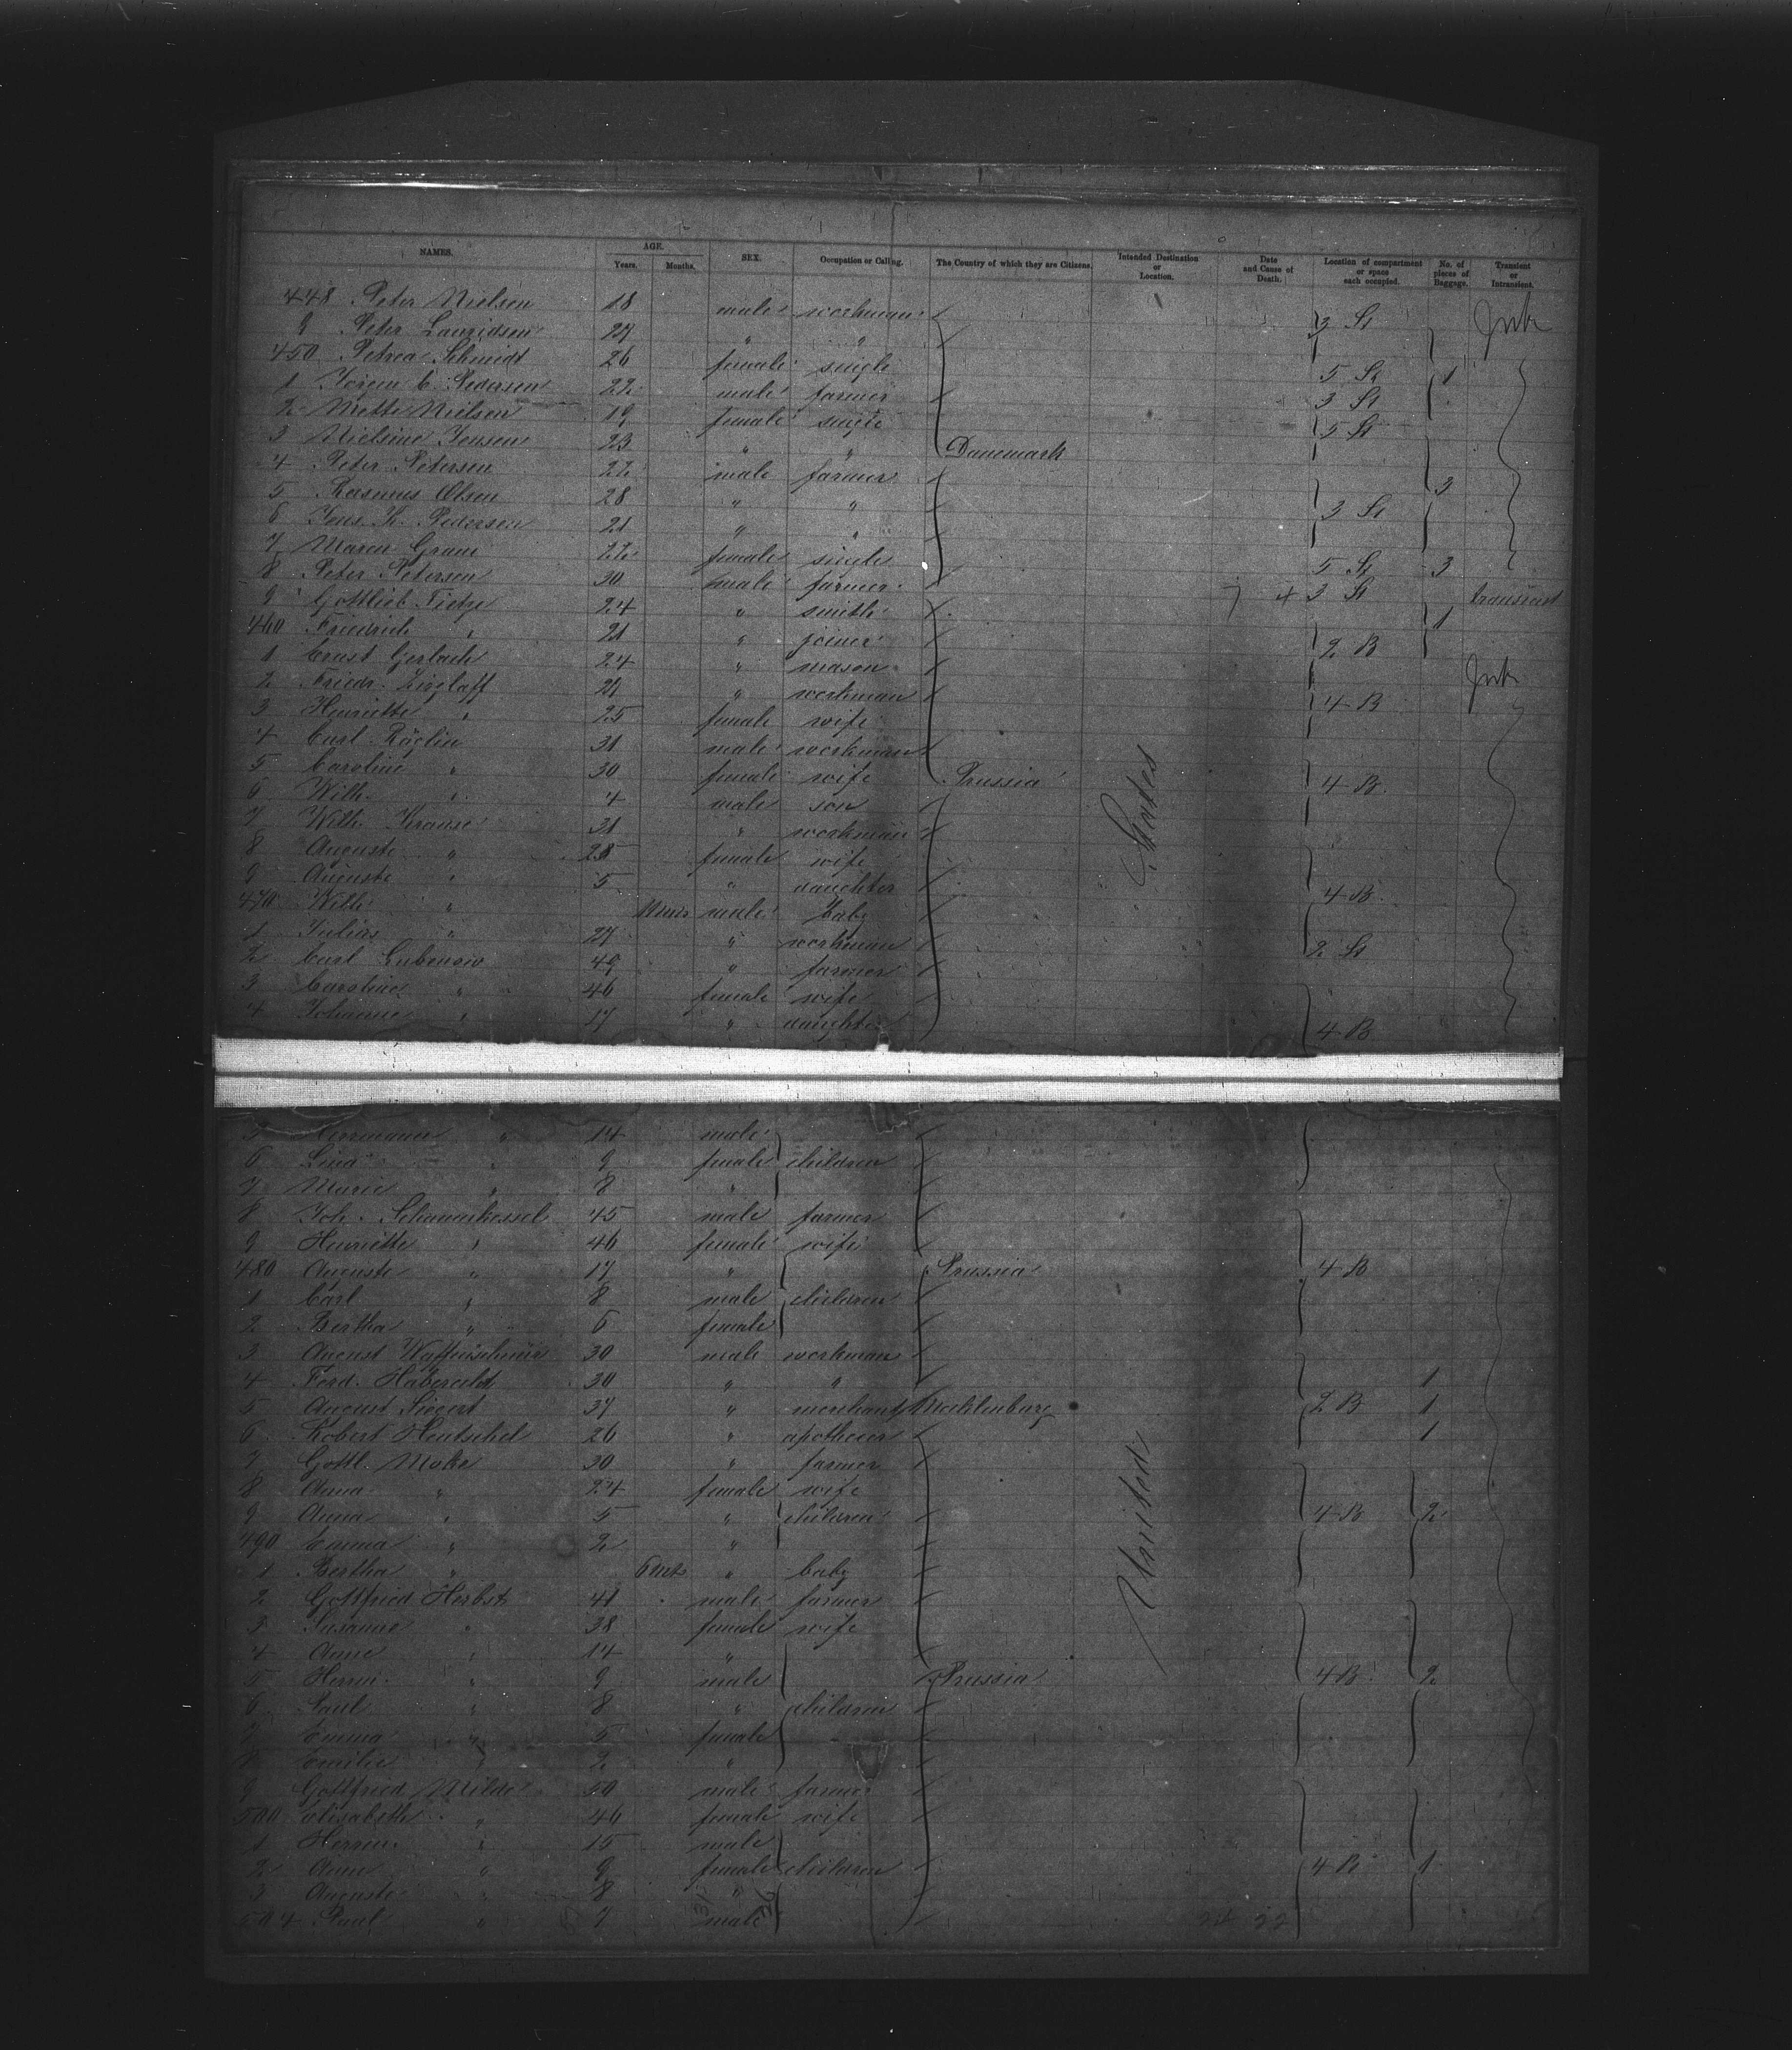 NAMES. AGE. SEX. Occupation or Calling. The Country of which they are Citizens. Intended Destination or Location. Date and Cause of Death. Location of compartment or space each occupied. No. of pieces of Baggage. Transient or Intransient.
Years. Months.
448 Peter Nielsen 18 male workman 3 St
9 Peter Lauridsen 27 " "
450 Petrea Schmidt 26 female single 5 St 1
1 Jörgen C. Pedersen 22 male farmer 3 St
2 Mette Nielsen 19 female single 5 St
3 Nielsine Jensen 23 " " Danemark
4 Peter Petersen 22 male farmer 3
5 Rasmus Olsen 28 " " 3 St
6 Jens K. Pedersen 21 " "
7 Maren Gram 22 female single 5 St 3
8 Peter Petersen 30 male farmer 3 St transient
9 Gottlieb Tietze 24 " smith 1
460 Friedrich " 21 " joiner 2 B
1 Ernst Gerlach 24 " mason
2 Friedr. Zirzlaff 21 " workman 4 B
3 Henriette " 25 female wife
4 Carl Röglin 31 male workman
5 Caroline " 30 female wife Prussia 4 B.
6 Wilh. " 4 male son
7 Wilh. Krause 31 " workman
8 Auguste " 28 female wife
9 Auguste " 5 " daughter 4 B.
470 Wilh. " male baby
1 Julius " 27 " workman 2 St
2 Carl Lubenow 49 " farmer
3 Caroline " 46 female wife
4 Johanne " 17 " daughter 4 B
States
5 Herrmann " 14 male
6 Lina " 9 female children
7 Marie " 8 "
8 Joh. 45 male farmer
9 Henriette " 46 female wife
480 Auguste " 17 " Prussia 4 B
1 Carl " 8 male children
2 Bertha " 6 female
3 August 30 male workman
4 Ferd. Haberecht 30 " " 1
5 August Siegert 37 " merchant Mecklenburg 2 B 1
6 Robert Hentschel 26 " apothecer 1
7 Gottl. Moke 30 " farmer
8 Anna " 24 female wife
9 Anna " 5 " children 4 B 2
490 Emma " 2 "
1 Bertha " 6 mts " baby
2 Gottfried Herbst 41 male farmer
3 Susanne " 38 female wife
4 Anne " 14 "
5 Herm. " 9 male Prussia 4 B. 2
6 Paul " 8 " children
7 Emma " 5 female
8 Emilie " 2 "
9 Gottfried Milde 50 male farmer
500 Elisabeth " 46 female wife
1 Herrm. " 15 male
2 Anna " 9 female children 4 B 1
3 Auguste " 8 "
504 Paul " 7 male
United